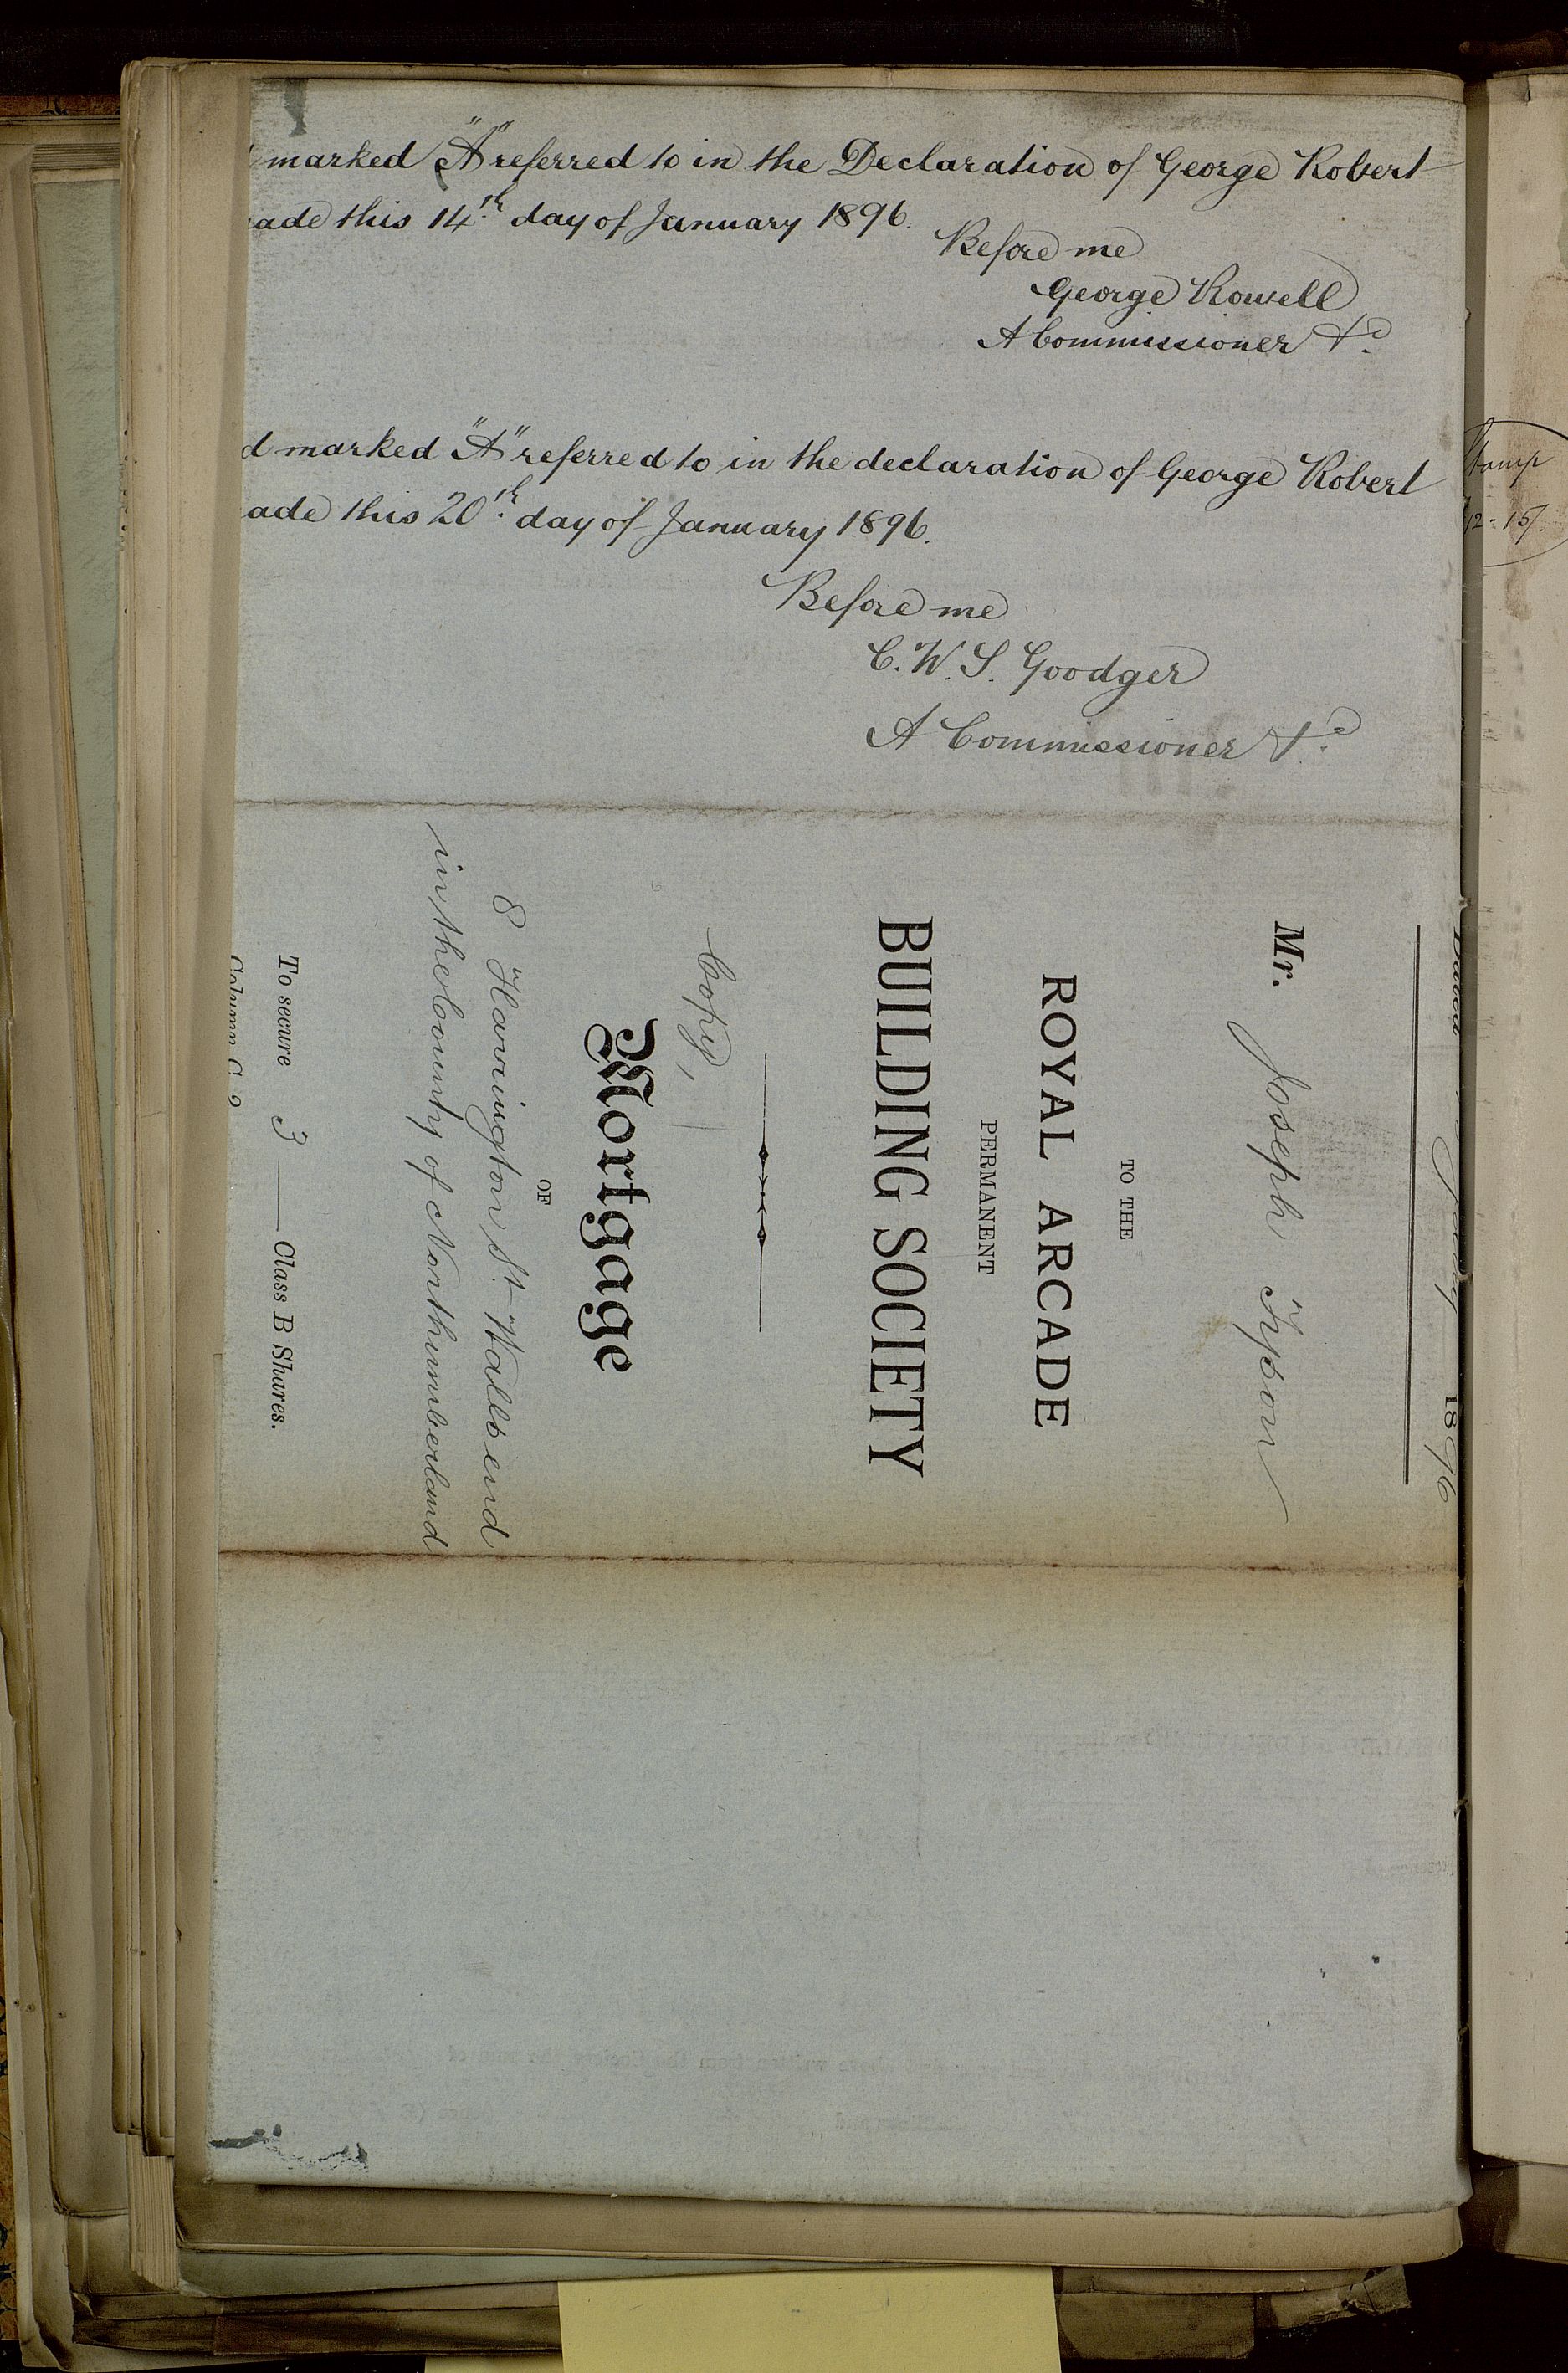 marked "A" referred to in the Declaration of George Robert
ade this 14th day of January 1896.
Before me
George Rowell
A Commissioner &c
d marked "A" referred to in the declaration of George Robert
ade this 20th day of January 1896.
Before me
C. W. S. Goodger
A Commissioner &c
Stamp
12-15/.
Dated 1896
Mr. Joseph Tyson
TO THE
ROYAL ARCADE
PERMANENT
BUILDING SOCIETY
Copy,
Mortgage
OF
8 Harrington St. Wallsend
in the County of Northumberland
To secure 3 Class B Shares.
Column C